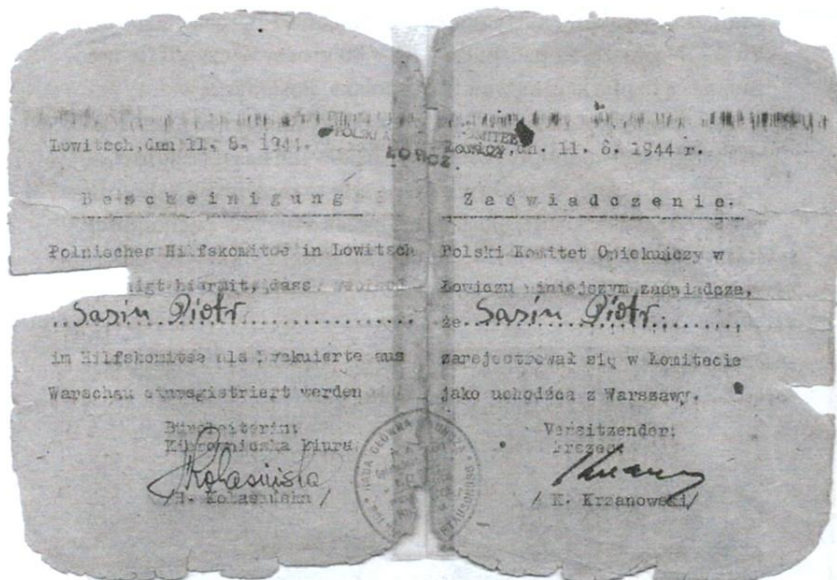 Lowitsch, den 11. 8. 1944.
Bescheinigung
Polnisches Hilfskomitee in Lowitsch
hiermit, dass
..Sasin Piotr
in Hilfskomitee als Evakuierte aus
Warschau werden
Büroleiterin:
Kierowniczka biura
Kołasińska
/ Kołasińska /
POLSKI KOMITET
ŁOWICZ
Łowicz, dn. 11. 8. 1944 r.
Zaświadczenie.
Polski Komitet Opiekuńczy w
Łowiczu niniejszym zaświadcza,
że Sasin Piotr
zarejestrował się w Komitecie
jako uchodźca z Warszawy.
Vorsitzender:
Prezes
/ K. Krzanowski/
RADA GŁÓWNA OPIEKUŃCZA